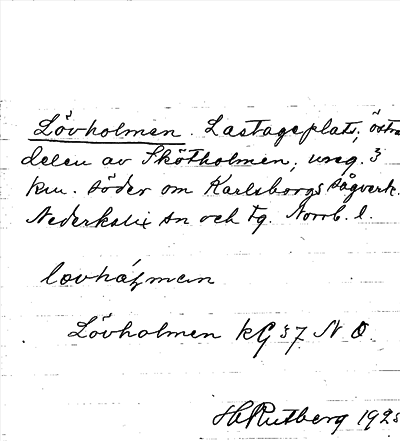 Lövholmen. Lastageplats, östra
delen av Skötholmen, ung. 3
km. söder om Karlsborgs sågverk.
Nederkalix sn och tg. Norrb. l.
Lövholmen kG 37 NO.
H Rutberg 192